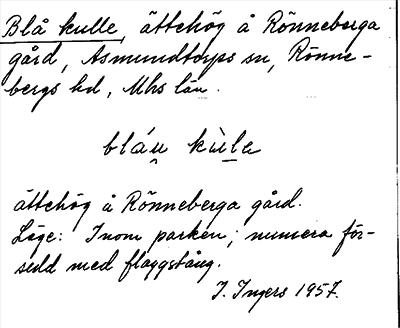 Blå kulle, ättehög å Rönneberga
gård, Asmundtorps sn, Rönne-
bergs hd, Mhs län.
bláu̯ kùle
ättehög å Rönneberga gård.
Läge: Inom parken; numera för-
sedd med flaggstång.
I. Ingers 1957.